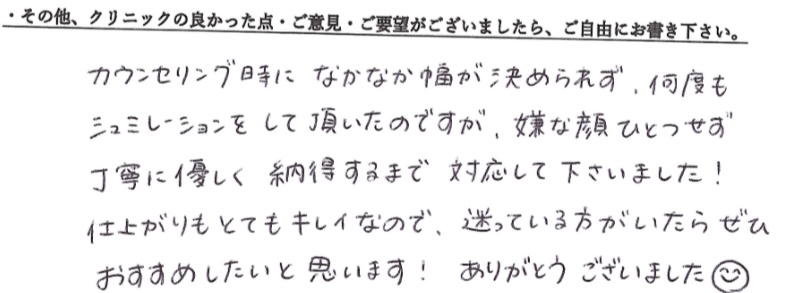 ・その他、クリニックの良かった点・ご意見・ご要望がございましたら、ご自由にお書き下さい。
カウンセリング時に なかなか幅が決められず、何度も
シュミレーションをして頂いたのですが、嫌な顔ひとつせず
丁寧に優しく 納得するまで 対応して下さいました!
仕上がりもとてもキレイなので、迷っている方がいたらぜひ
おすすめしたいと思います! ありがとうございました☺